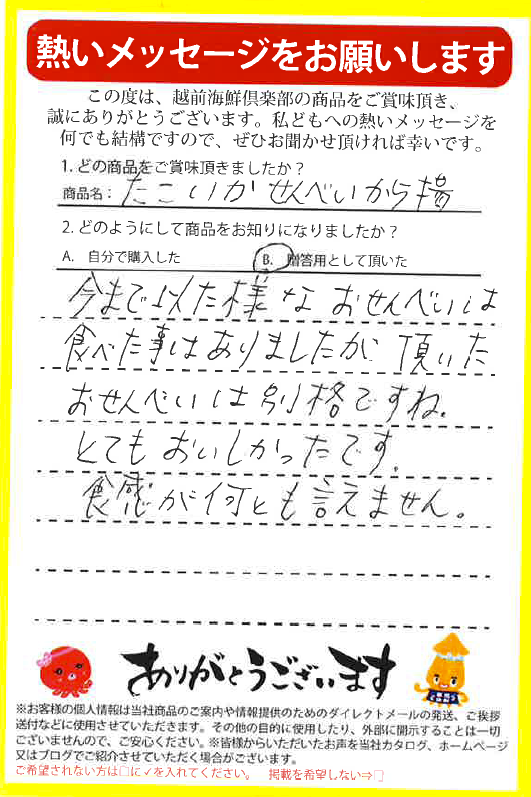 熱いメッセージをお願いします
この度は、越前海鮮倶楽部の商品をご賞味頂き、
誠にありがとうございます。私どもへの熱いメッセージを
何でも結構ですので、ぜひお聞かせ頂ければ幸いです。
1. どの商品をご賞味頂きましたか？
商品名： たこいか せんべいから揚
2. どのようにして商品をお知りになりましたか？
A. 自分で購入した B. 贈答用として頂いた
今まで以た様な おせんべいは
食べた事はありましたが 頂いた
おせんべいは別格ですね。
とてもおいしかったです。
食感が何とも言えません。
ありがとうございます
※お客様の個人情報は当社商品のご案内や情報提供のためのダイレクトメールの発送、ご挨拶
送付などに使用させていただきます。その他の目的に使用したり、外部に開示することは一切
ございませんので、ご安心ください。※皆様からいただいたお声を当社カタログ、ホームページ
又はブログでご紹介させていただく場合がございます。
ご希望されない方は□に✓を入れてください。 掲載を希望しない⇒□